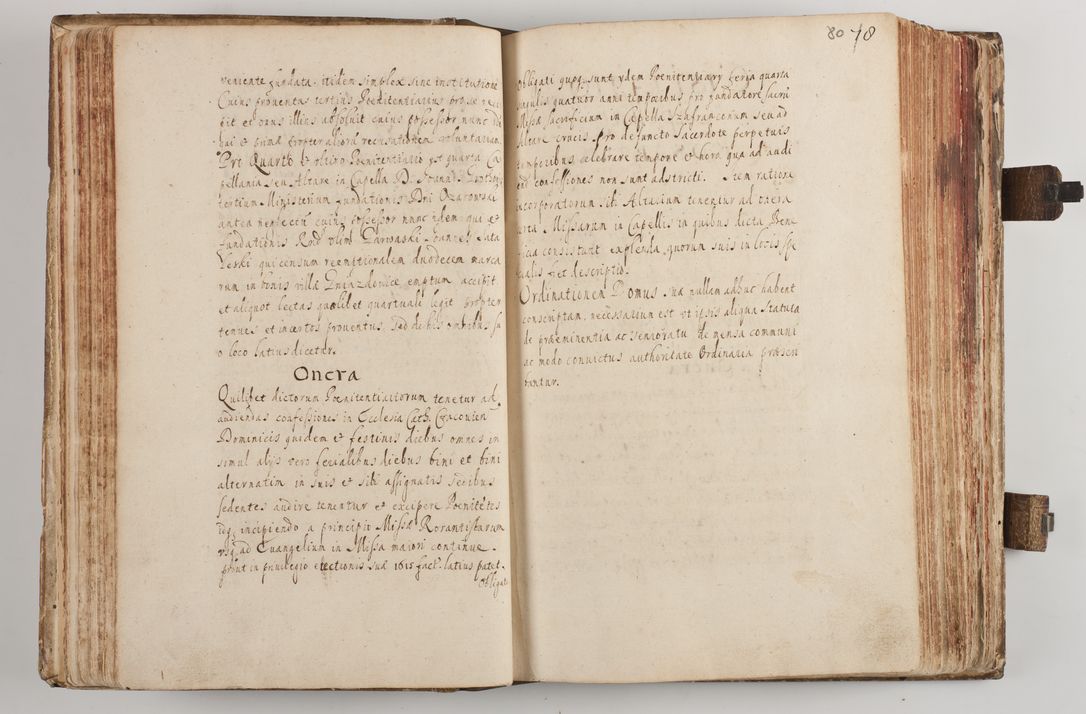 veniente fundata. itidem simplex sine institutione
Cuius proventu tertius Poenitentiarius
tit et onus illius absoluit cuius possessor nunc
voluntariam
Pro Quarto & ultimo Poenitentiario est quarta Ca
pellania seu Altare in Capella D. Joannis
tertium Ministerium fundationis Dni Ozarowski
antea cuius possessor nunc idem qui &
fundationis Rnd olim Joannes
qui censum reemptionalem duodecem marca
rum in bonis villa Gniazdowice emptum accepit
et aliquot lectas quolibet quartuale legit propter
tenues et incertos proventus sed de his omnibus su
o loco latius dicetur.
Onera
Quilibet dictorum Poenitentiariorum tenetur ad
audiendas confessiones in Ecclesia Cath. Cracouien
Dominicis quidem & festiuis diebus omnes in
simul alys vero ferialibus diebus bini et bini
alternatim in suis & sibi assignatis sedibus
sedentes audire tenentur & excipere Poenitetes
idq; incipiendo a principio Missa Rorantistarum
vsq; ad Euangelium in Missa maiori continue.
prout in priuilegio erectionis sua 1615 fact. latius patet.
Obligati
80 78
Obligati quoq; sunt ydem Poenitentiary feria quarta
singulis quatuor anni temporibus pro fundatore sacri
Missa sacrificium in Capella Szafrancorum seu ad
Altare Crucis pro defuncto Sacerdote perpetuis
temporibus celebrare tempore & hora qua ad audi
end confessiones non sunt adstricti. Item ratione
incorporatorum sibi Altarium tenentur ad onera
certa Missarum in Capellis in quibus dicta Bene
ficia consistunt explenda, quorum suis in locis spe
cialis fiet descriptio.
Ordinationem Domus sua nullam adhuc habent
conscriptam, necessarium est vt ipsis aliqua statuta
de praeminentia ac senioratu de mensa communi
ac modo conuictus authoritate Ordinaria praescri
bantur.